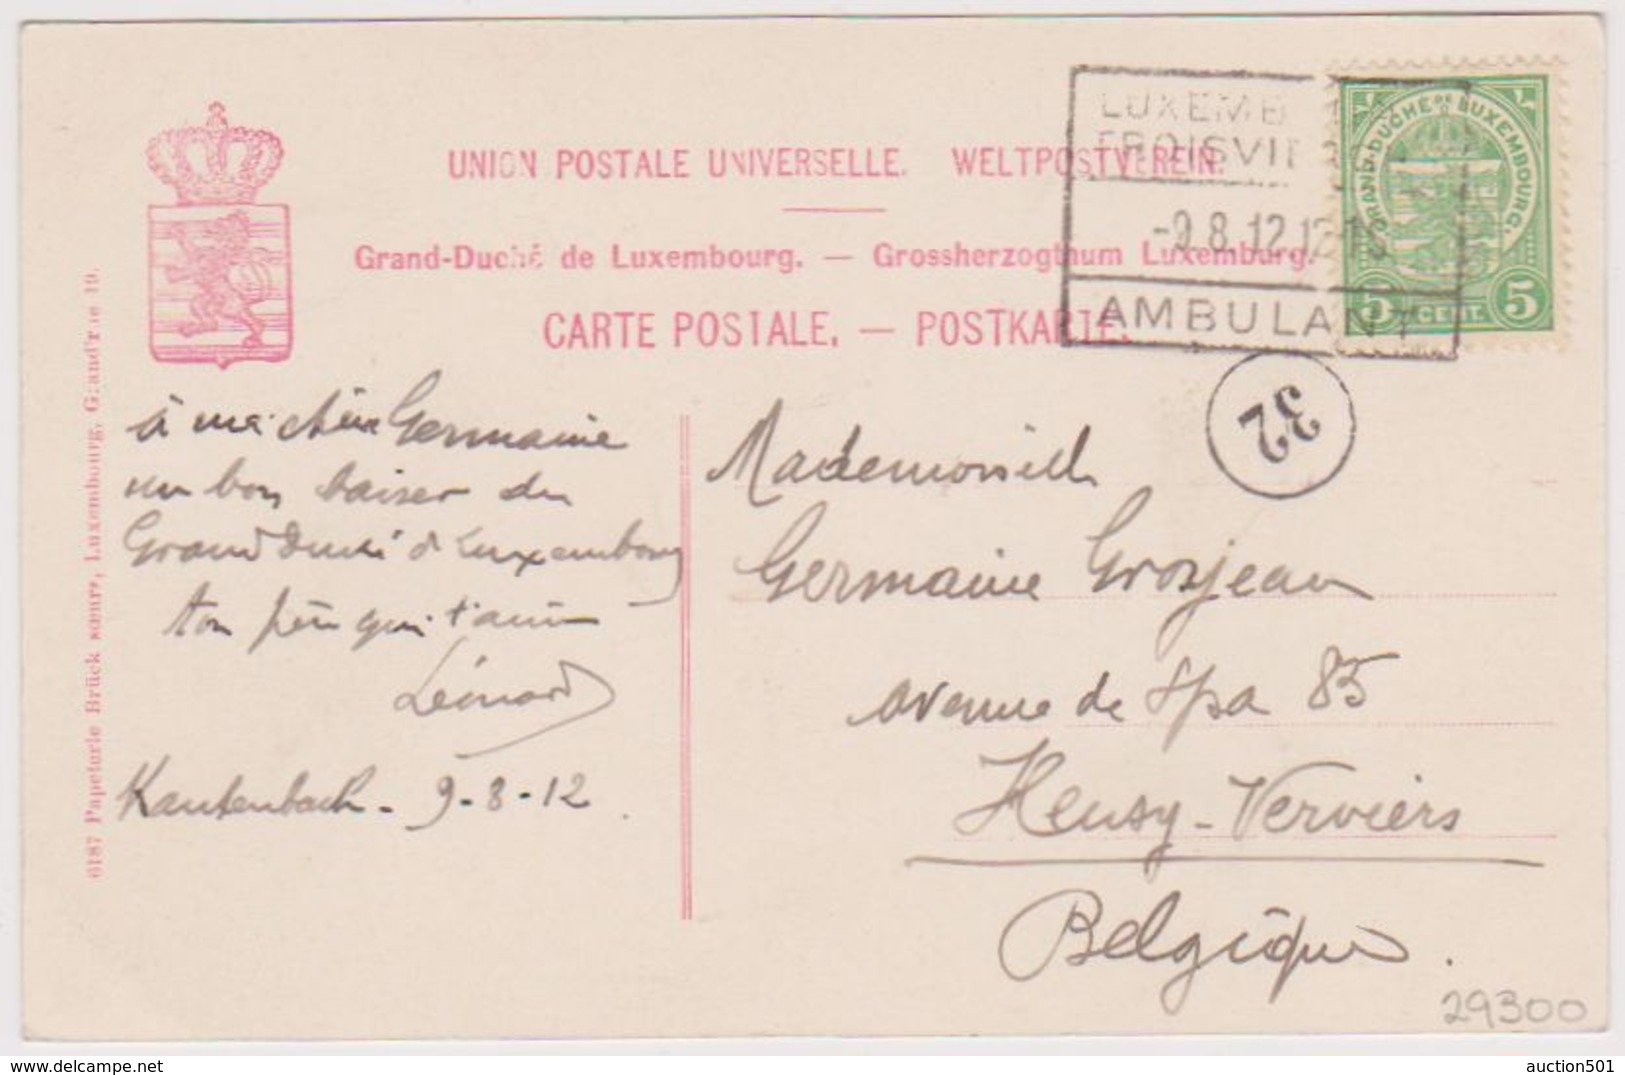 UNION POSTALE UNIVERSELLE. WELTPOSTVEREIN.
Grand-Duché de Luxembourg. — Grossherzogthum Luxemburg.
CARTE POSTALE. — POSTKARTE.
LUXEMB
TROISVI
-9.8.12 12-
AMBULANT
GRAND-DUCHÉ DE LUXEMBOURG.
5 CENT. 5
32
à ma chère Germaine
un bon baiser du
Grand Duché d Luxembourg
ton père qui t'aime
Léonard
Kautenbach - 9-8-12.
Mademoiselle
Germaine Grosjean
avenue de Spa 85
Heusy-Verviers
Belgique.
29300
6187 Papeterie Brück sœurr, Luxembourg, Grand'r ie 19.
auction501